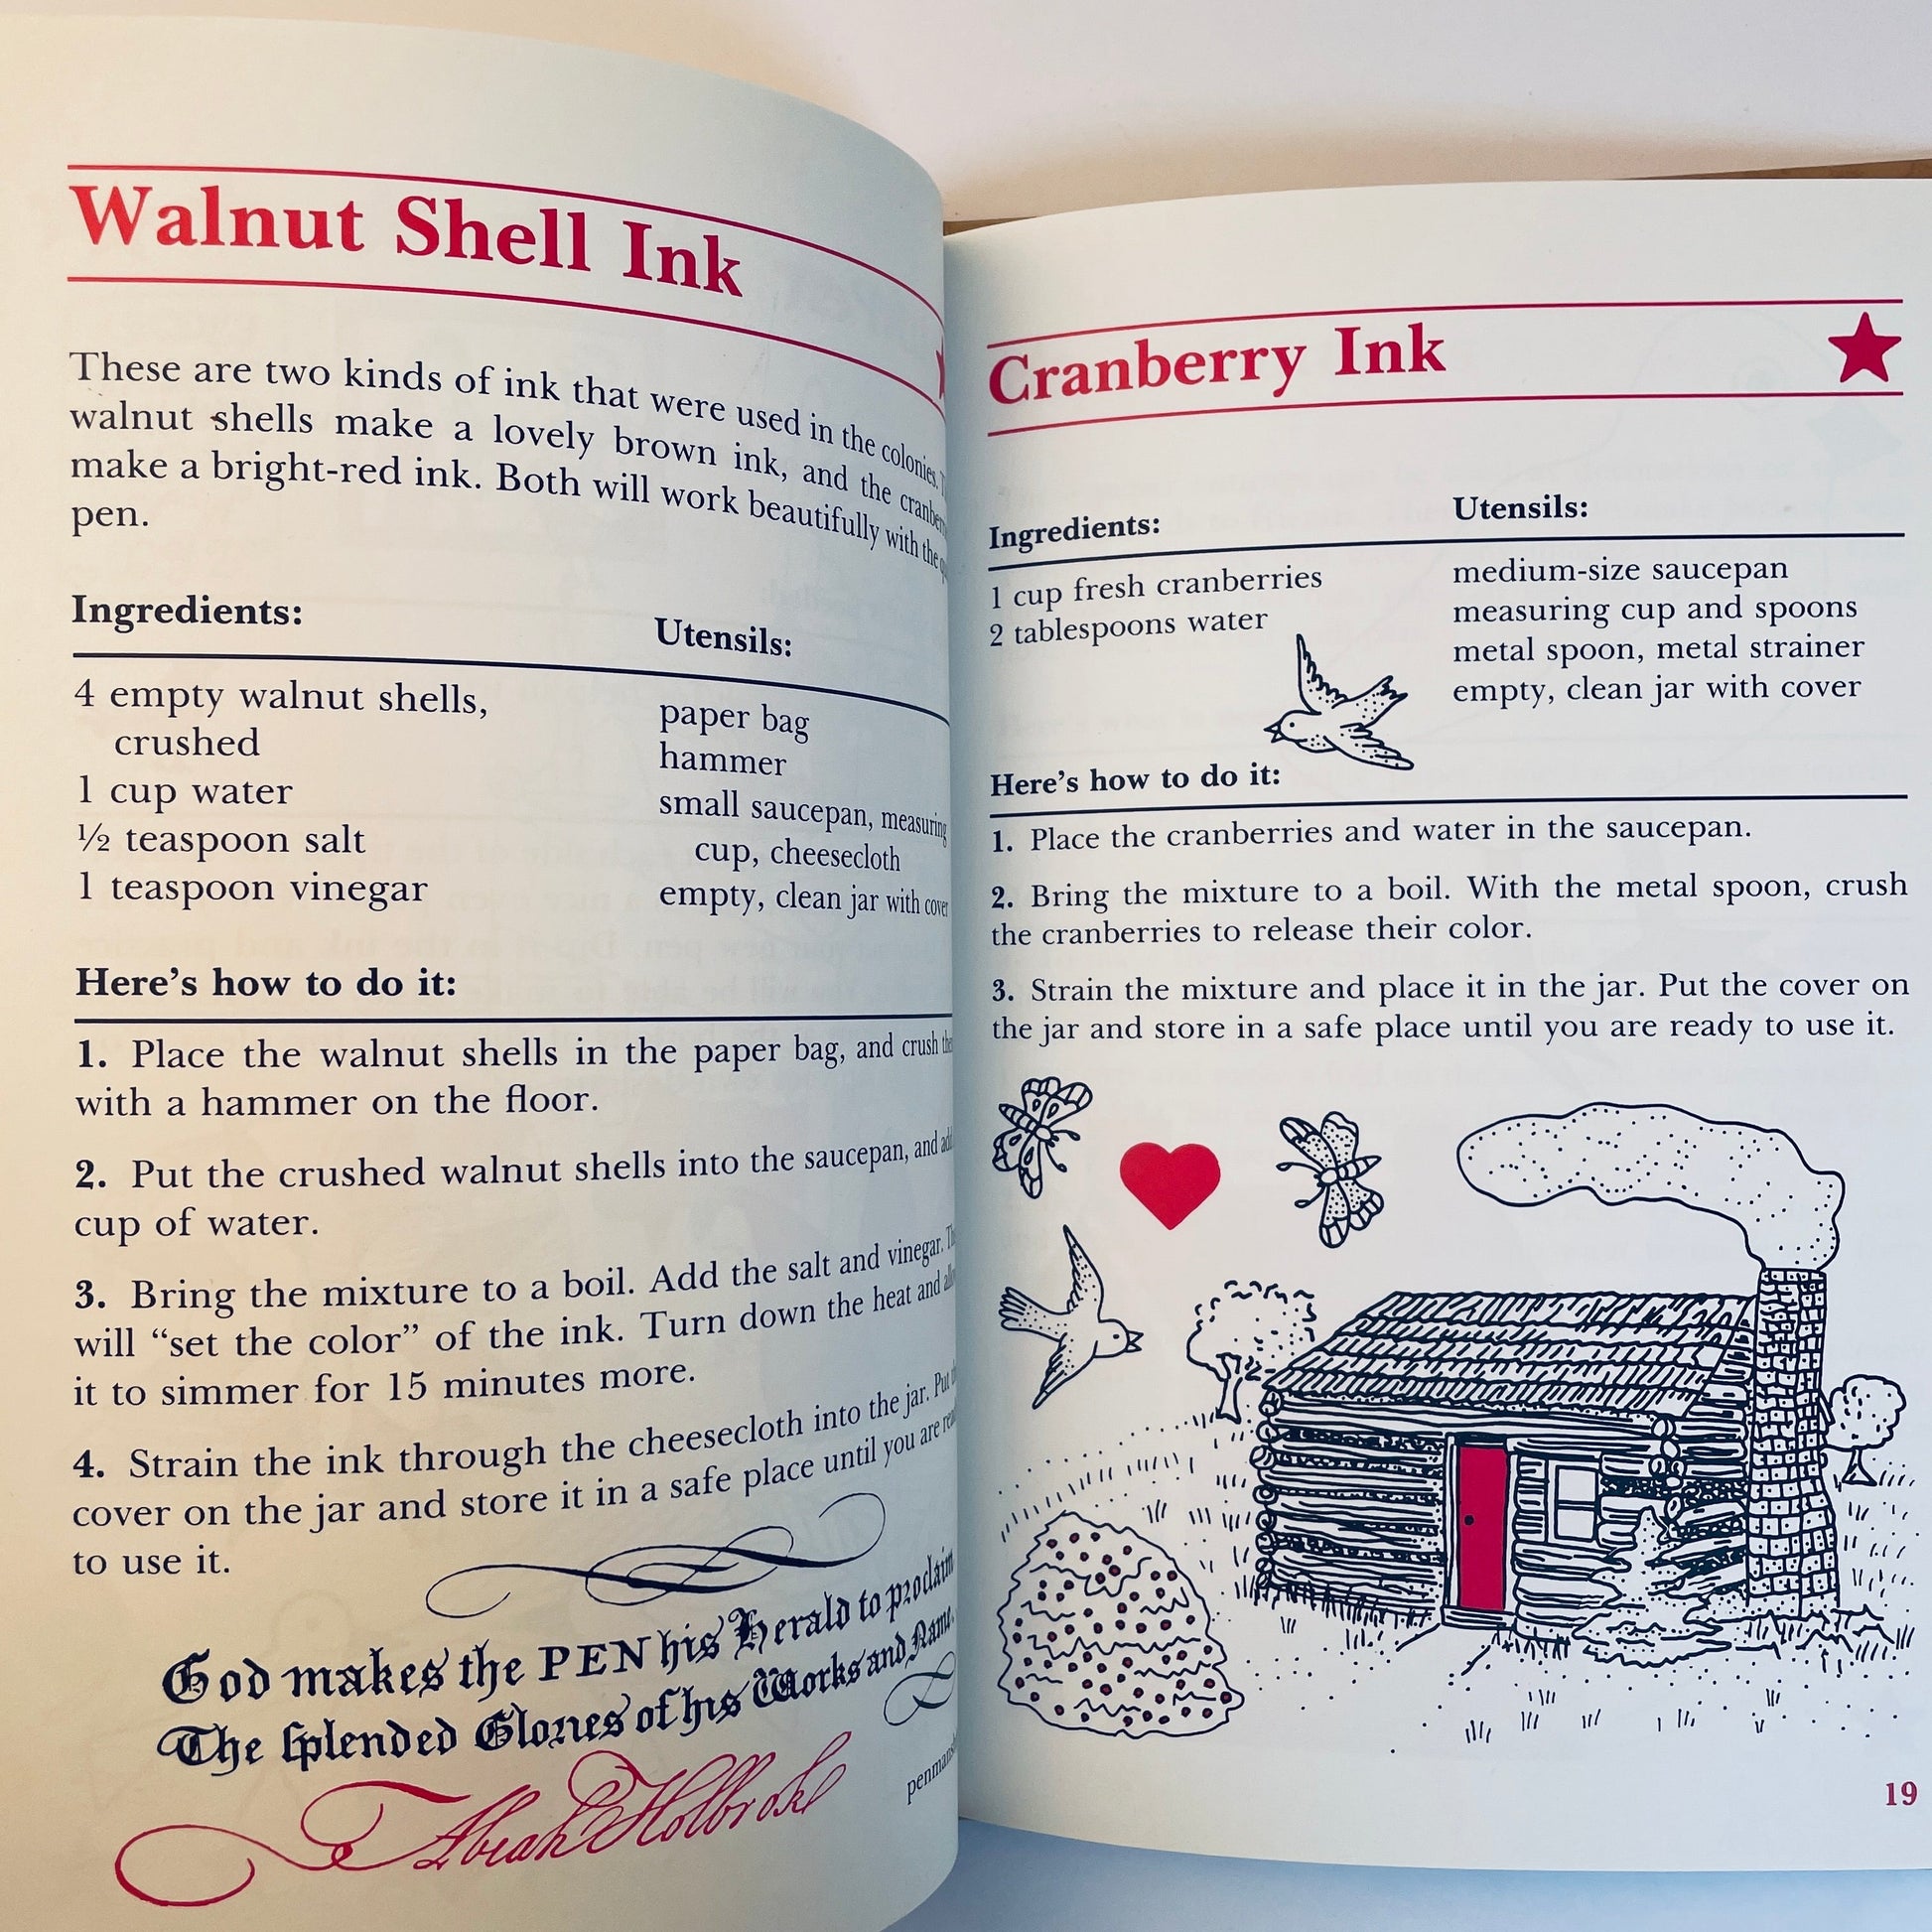 Walnut Shell Ink
These are two kinds of ink that were used in the colonies.
walnut shells make a lovely brown ink, and the
make a bright-red ink. Both will work beautifully with the
pen.
Ingredients:
Utensils:
4 empty walnut shells,
crushed
1 cup water
½ teaspoon salt
1 teaspoon vinegar
paper bag
hammer
small saucepan, measuring
cup, cheesecloth
empty, clean jar with cover
Here's how to do it:
1. Place the walnut shells in the paper bag, and crush
with a hammer on the floor.
2. Put the crushed walnut shells into the saucepan, and
cup of water.
3. Bring the mixture to a boil. Add the salt and vinegar.
will “set the color” of the ink. Turn down the heat and
it to simmer for 15 minutes more.
4. Strain the ink through the cheesecloth into the jar. Put
cover on the jar and store it in a safe place until you are
to use it.
God makes the PEN his Herald to proclaim
The Splended Glories of his Works and Name.
Abiah Holbrook
Cranberry Ink
Ingredients:
Utensils:
1 cup fresh cranberries
2 tablespoons water
medium-size saucepan
measuring cup and spoons
metal spoon, metal strainer
empty, clean jar with cover
Here's how to do it:
1. Place the cranberries and water in the saucepan.
2. Bring the mixture to a boil. With the metal spoon, crush
the cranberries to release their color.
3. Strain the mixture and place it in the jar. Put the cover on
the jar and store in a safe place until you are ready to use it.
19